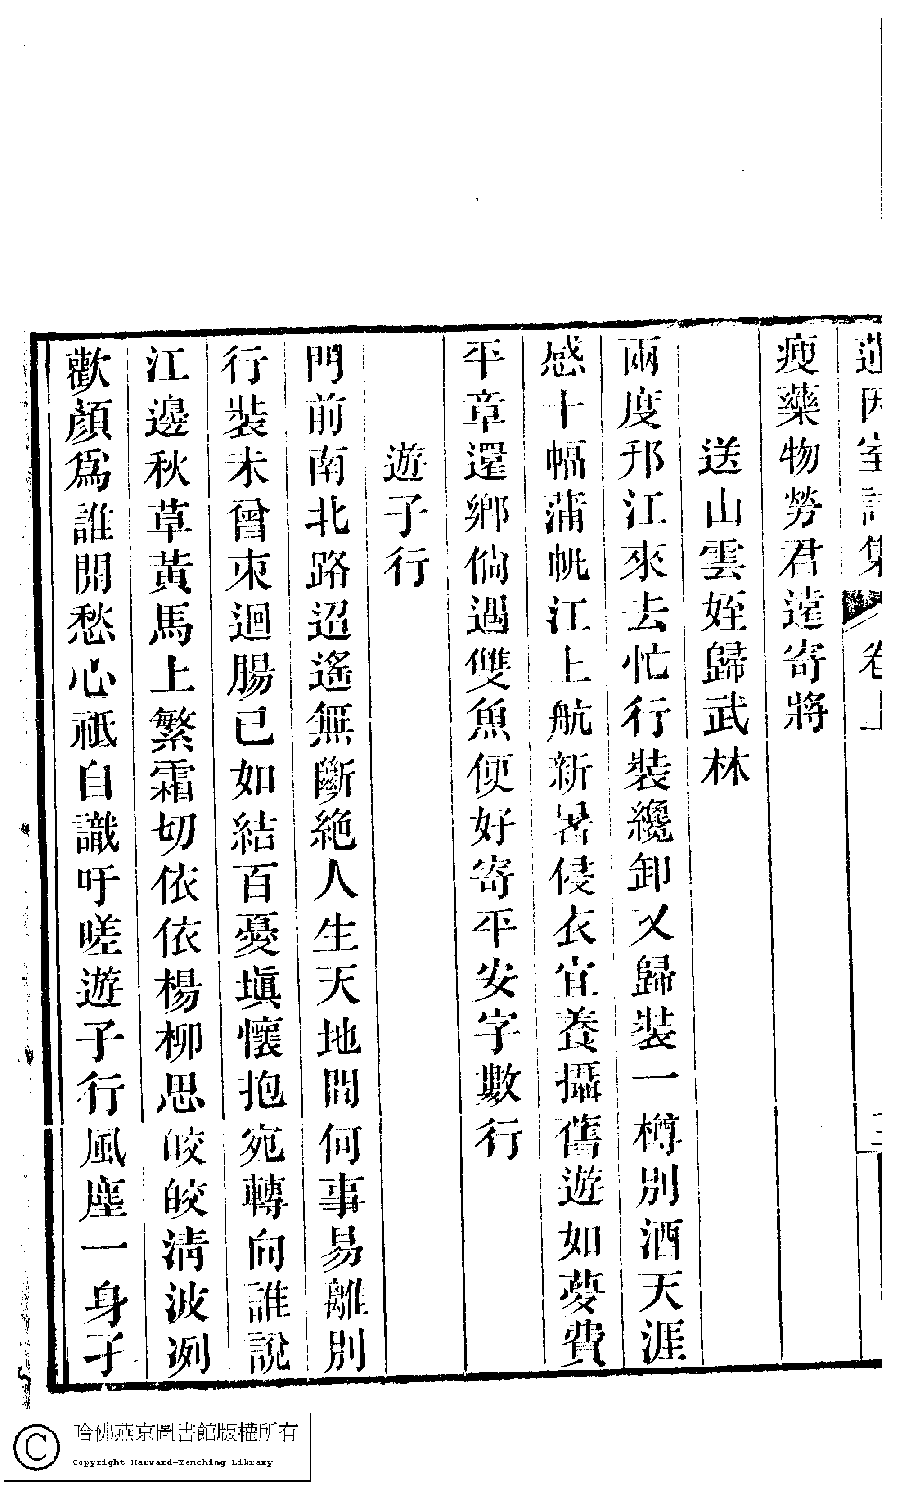 蓮因室詩集 卷上
瘦藥物勞君遠寄將
送山雲姪歸武林
兩度邗江來去忙行裝纔卸又歸裝一樽別酒天涯
感十幅蒲帆江上航新暑侵衣宜養攝舊遊如夢費
平章還鄉倘遇雙魚便好寄平安字數行
遊子行
門前南北路迢遙無斷絶人生天地間何事易離別
行裝未曾束迴腸已如結百憂塡懷抱宛轉向誰說
江邊秋草黃馬上繁霜切依依楊柳思皎皎清波冽
歡顏爲誰開愁心祗自識吁嗟遊子行風塵一身孑
哈佛燕京圖書館版權所有
Copyright Harvard-Yenching Library